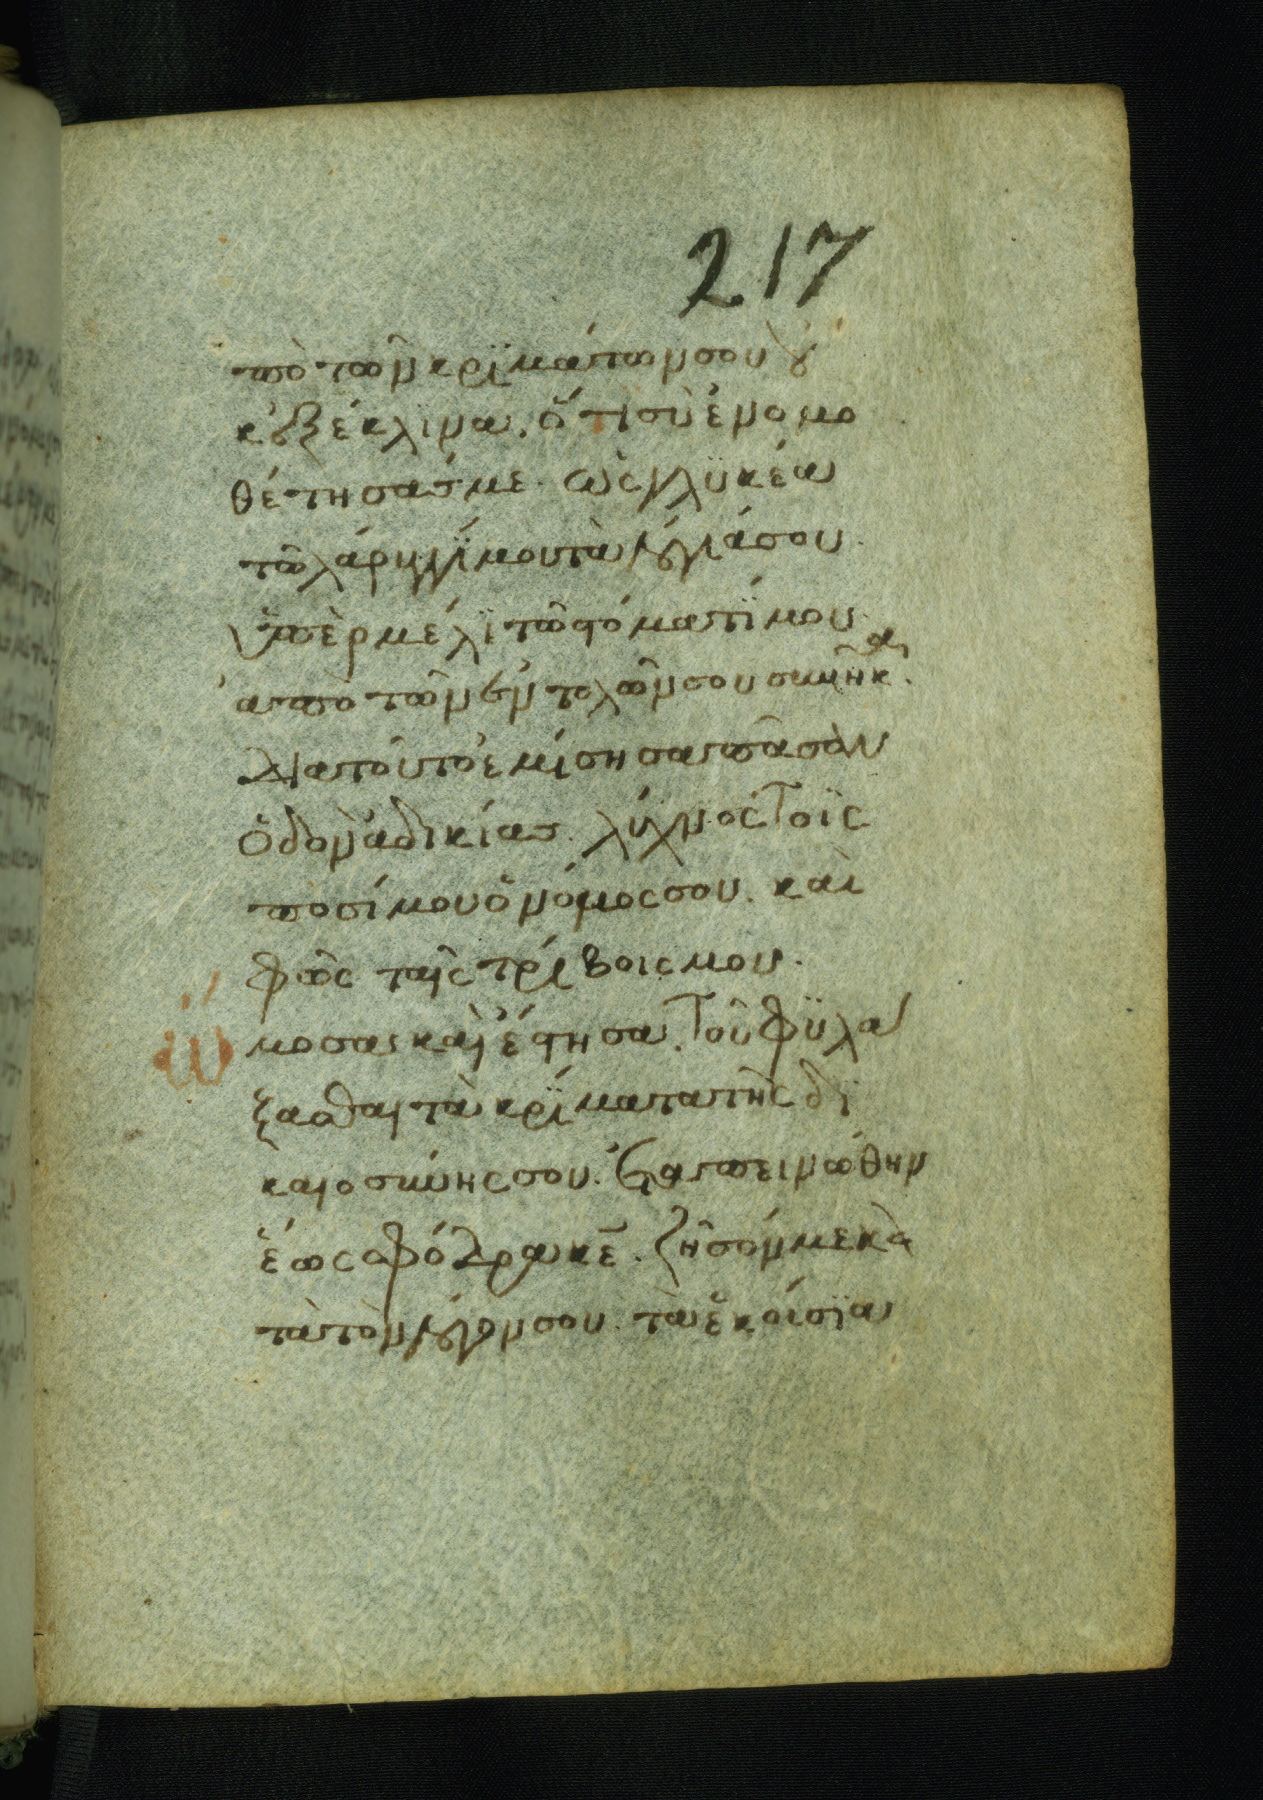 217
πὸ τῶν κριμάτων σου οὐ
κ ἐξέκλινα. ὅτι σὺ ἐνομο
θέτησάς με. ὡς γλυκέα
τῶ λάρυγγί μου τὰ λόγιά σου.
ὑπὲρ μέλι τῶ στόματί μου.
ἀπὸ τῶν ἐντολῶν σου συνῆκα.
διατοῦτο ἐμίσησα πᾶσαν
ὁδὸν ἀδικίας. λύχνος τοῖς
ποσί μου ὁ νόμος σου. καὶ
φῶς ταῖς τρίβοις μου.
ὤμοσα καὶ ἔστησα. τοῦ φυλά
ξασθαι τὰ κρίματα τῆς δι
καιοσύνης σου. ἐταπεινώθην
ἕως σφόδρα κε. ζῆσόν με κα
τὰ τὸν λόγον σου. τὰ ἑκούσια